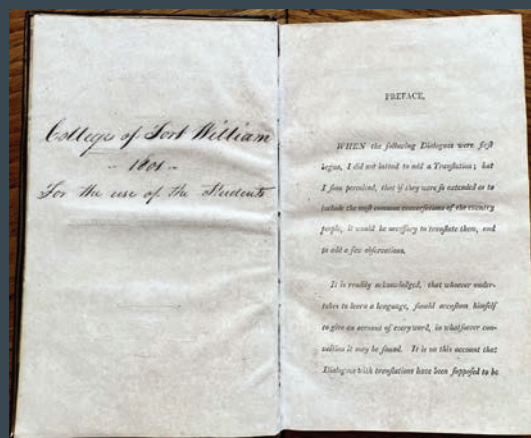 College of Fort William
- 1801 -
For the use of the Students
PREFACE.
WHEN the following Dialogues were first
begun, I did not intend to add a Translation; but
I soon perceived, that if they were so extended as to
include the most common conversations of the country
people, it would be necessary to translate them, and
to add a few observations.
It is readily acknowledged, that whoever under-
takes to learn a language, should accustom himself
to give an account of every word, in whatsoever con-
nection it may be found. It is on this account that
Dialogues with translations have been supposed to be